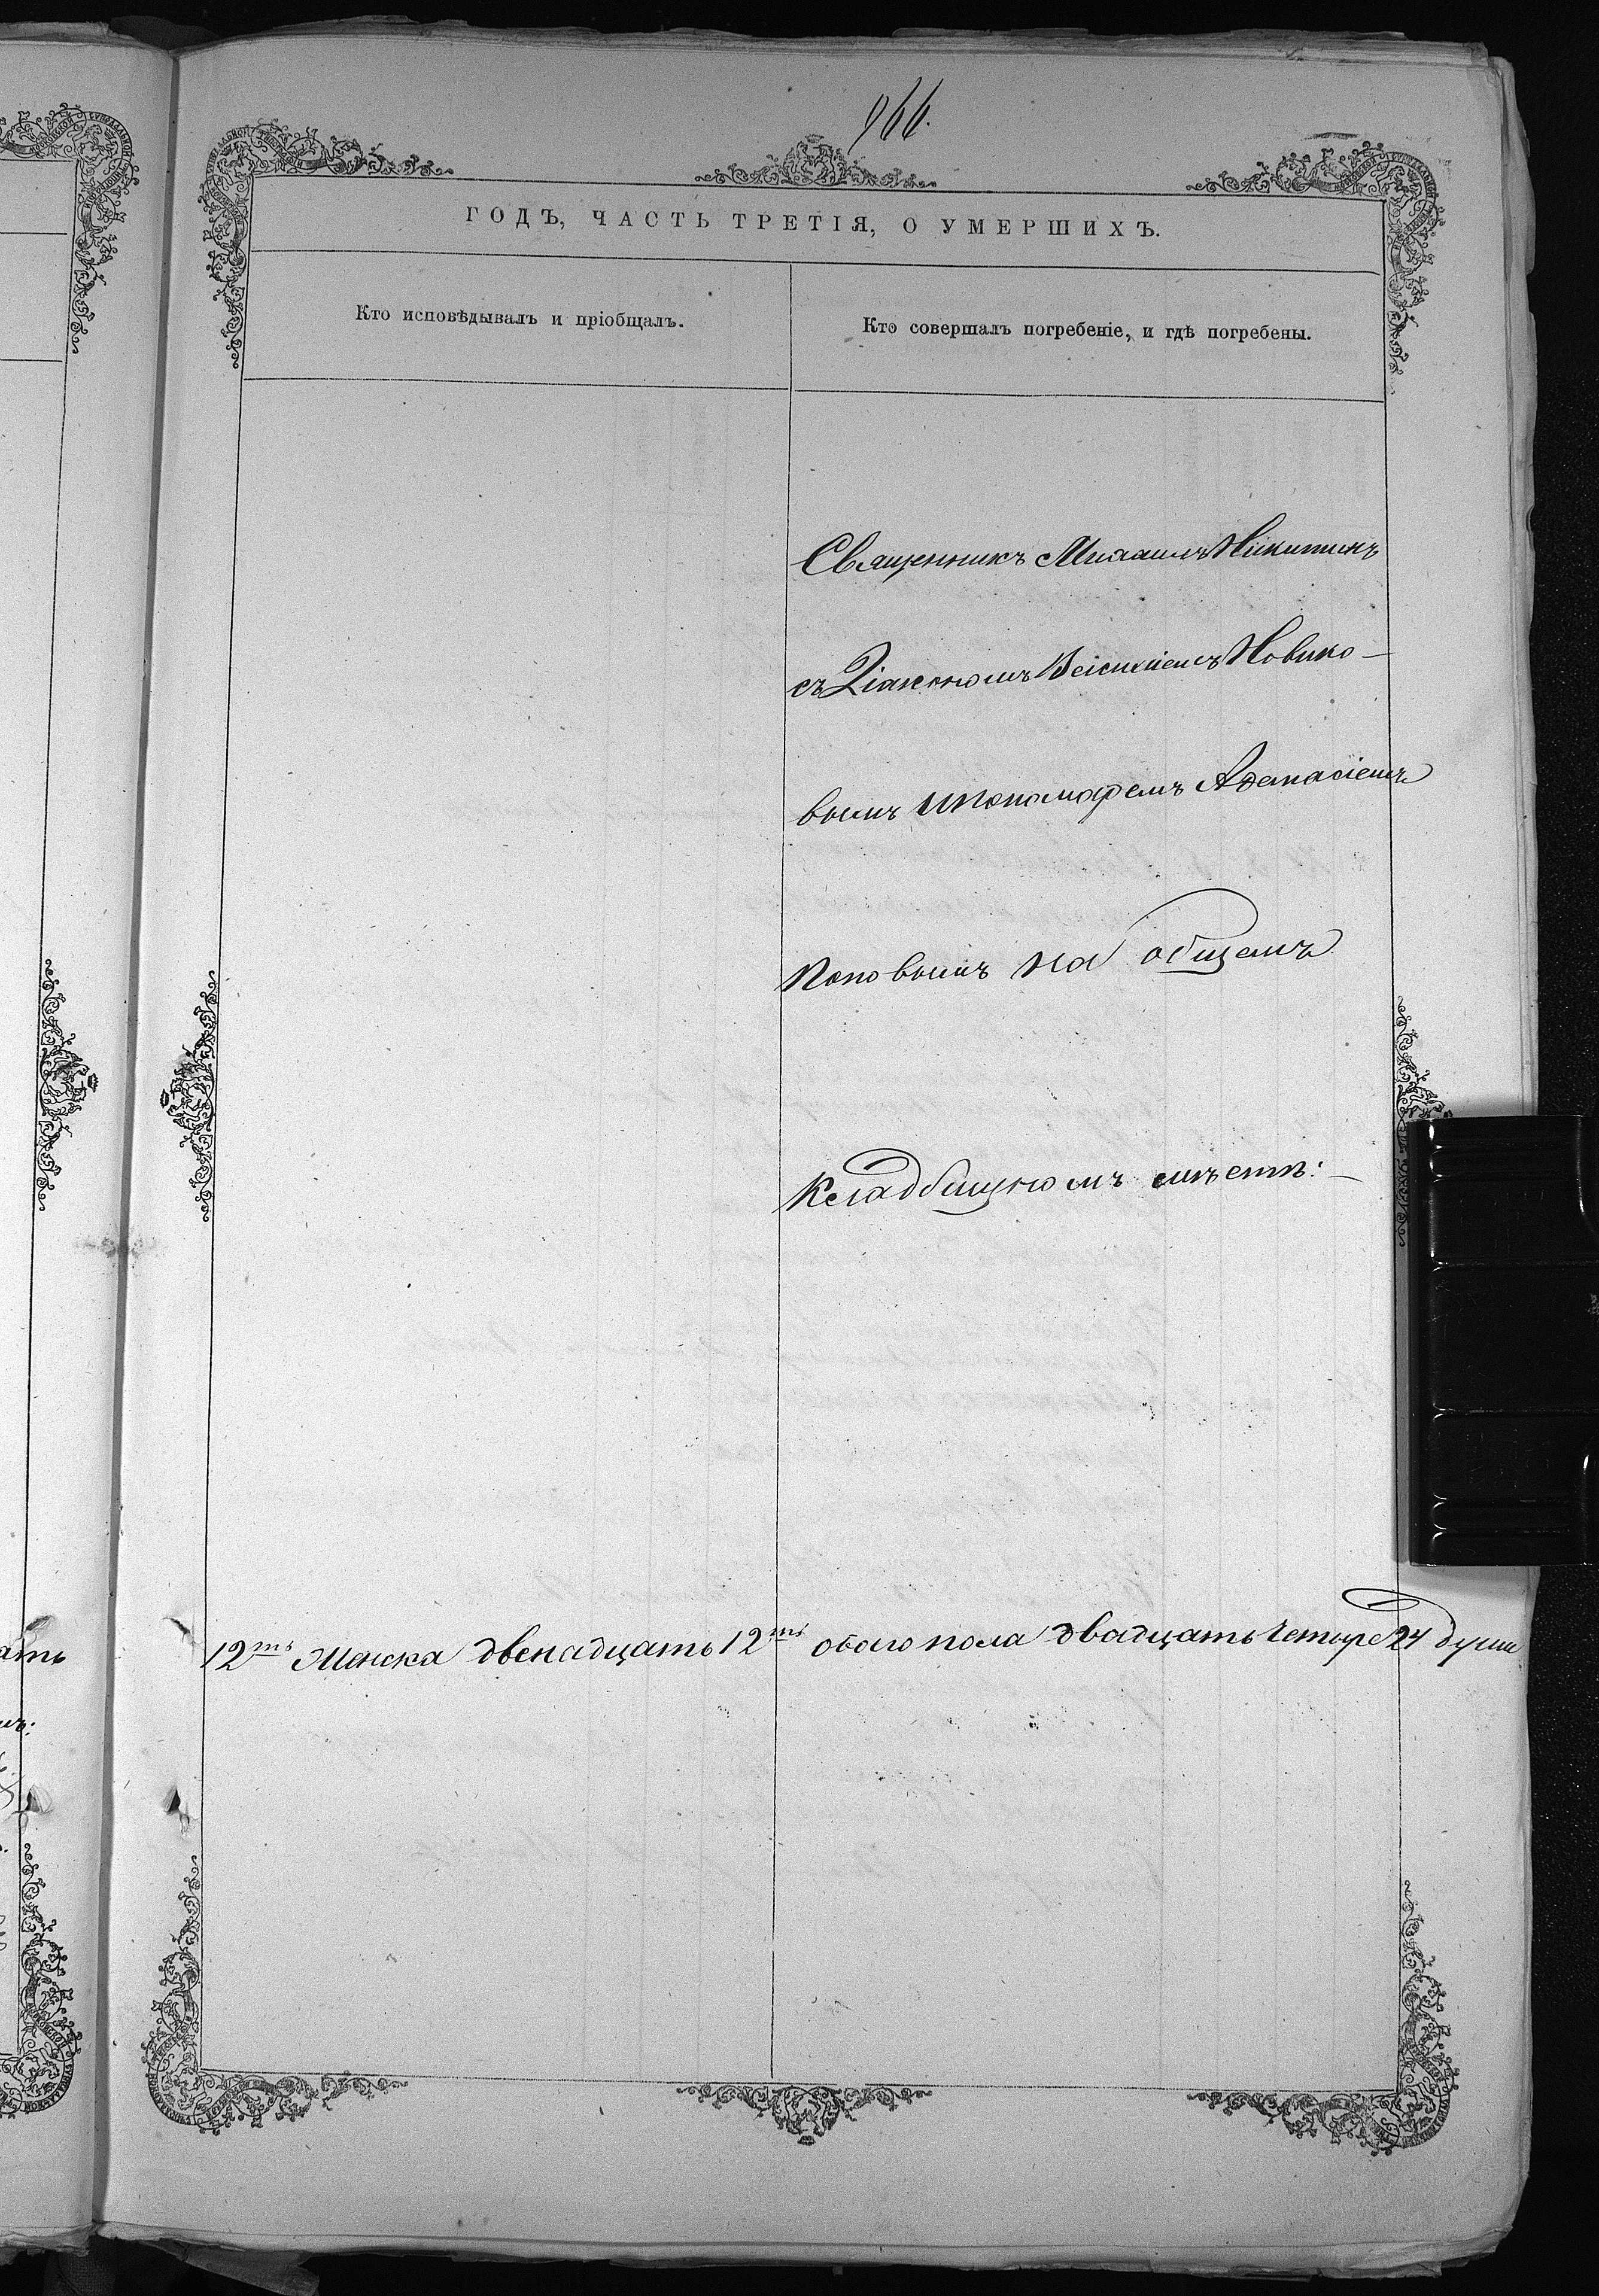 966.
ГОДЪ, ЧАСТЬ ТРЕТІЯ, О УМЕРШИХЪ.
Кто исповѣдывалъ и пріобщалъ.
Кто совершалъ погребеніе, и гдѣ погребены.
Священникъ Михаилъ Никитинъ
съ Діакономъ Новико-
вымъ и Пономаремъ Афанасіемъ
Поповымъ на общемъ
Кладбищномъ мѣстѣ:
12ть Женска двенадцать 12ть обоего пола двадцать четыре 24 души